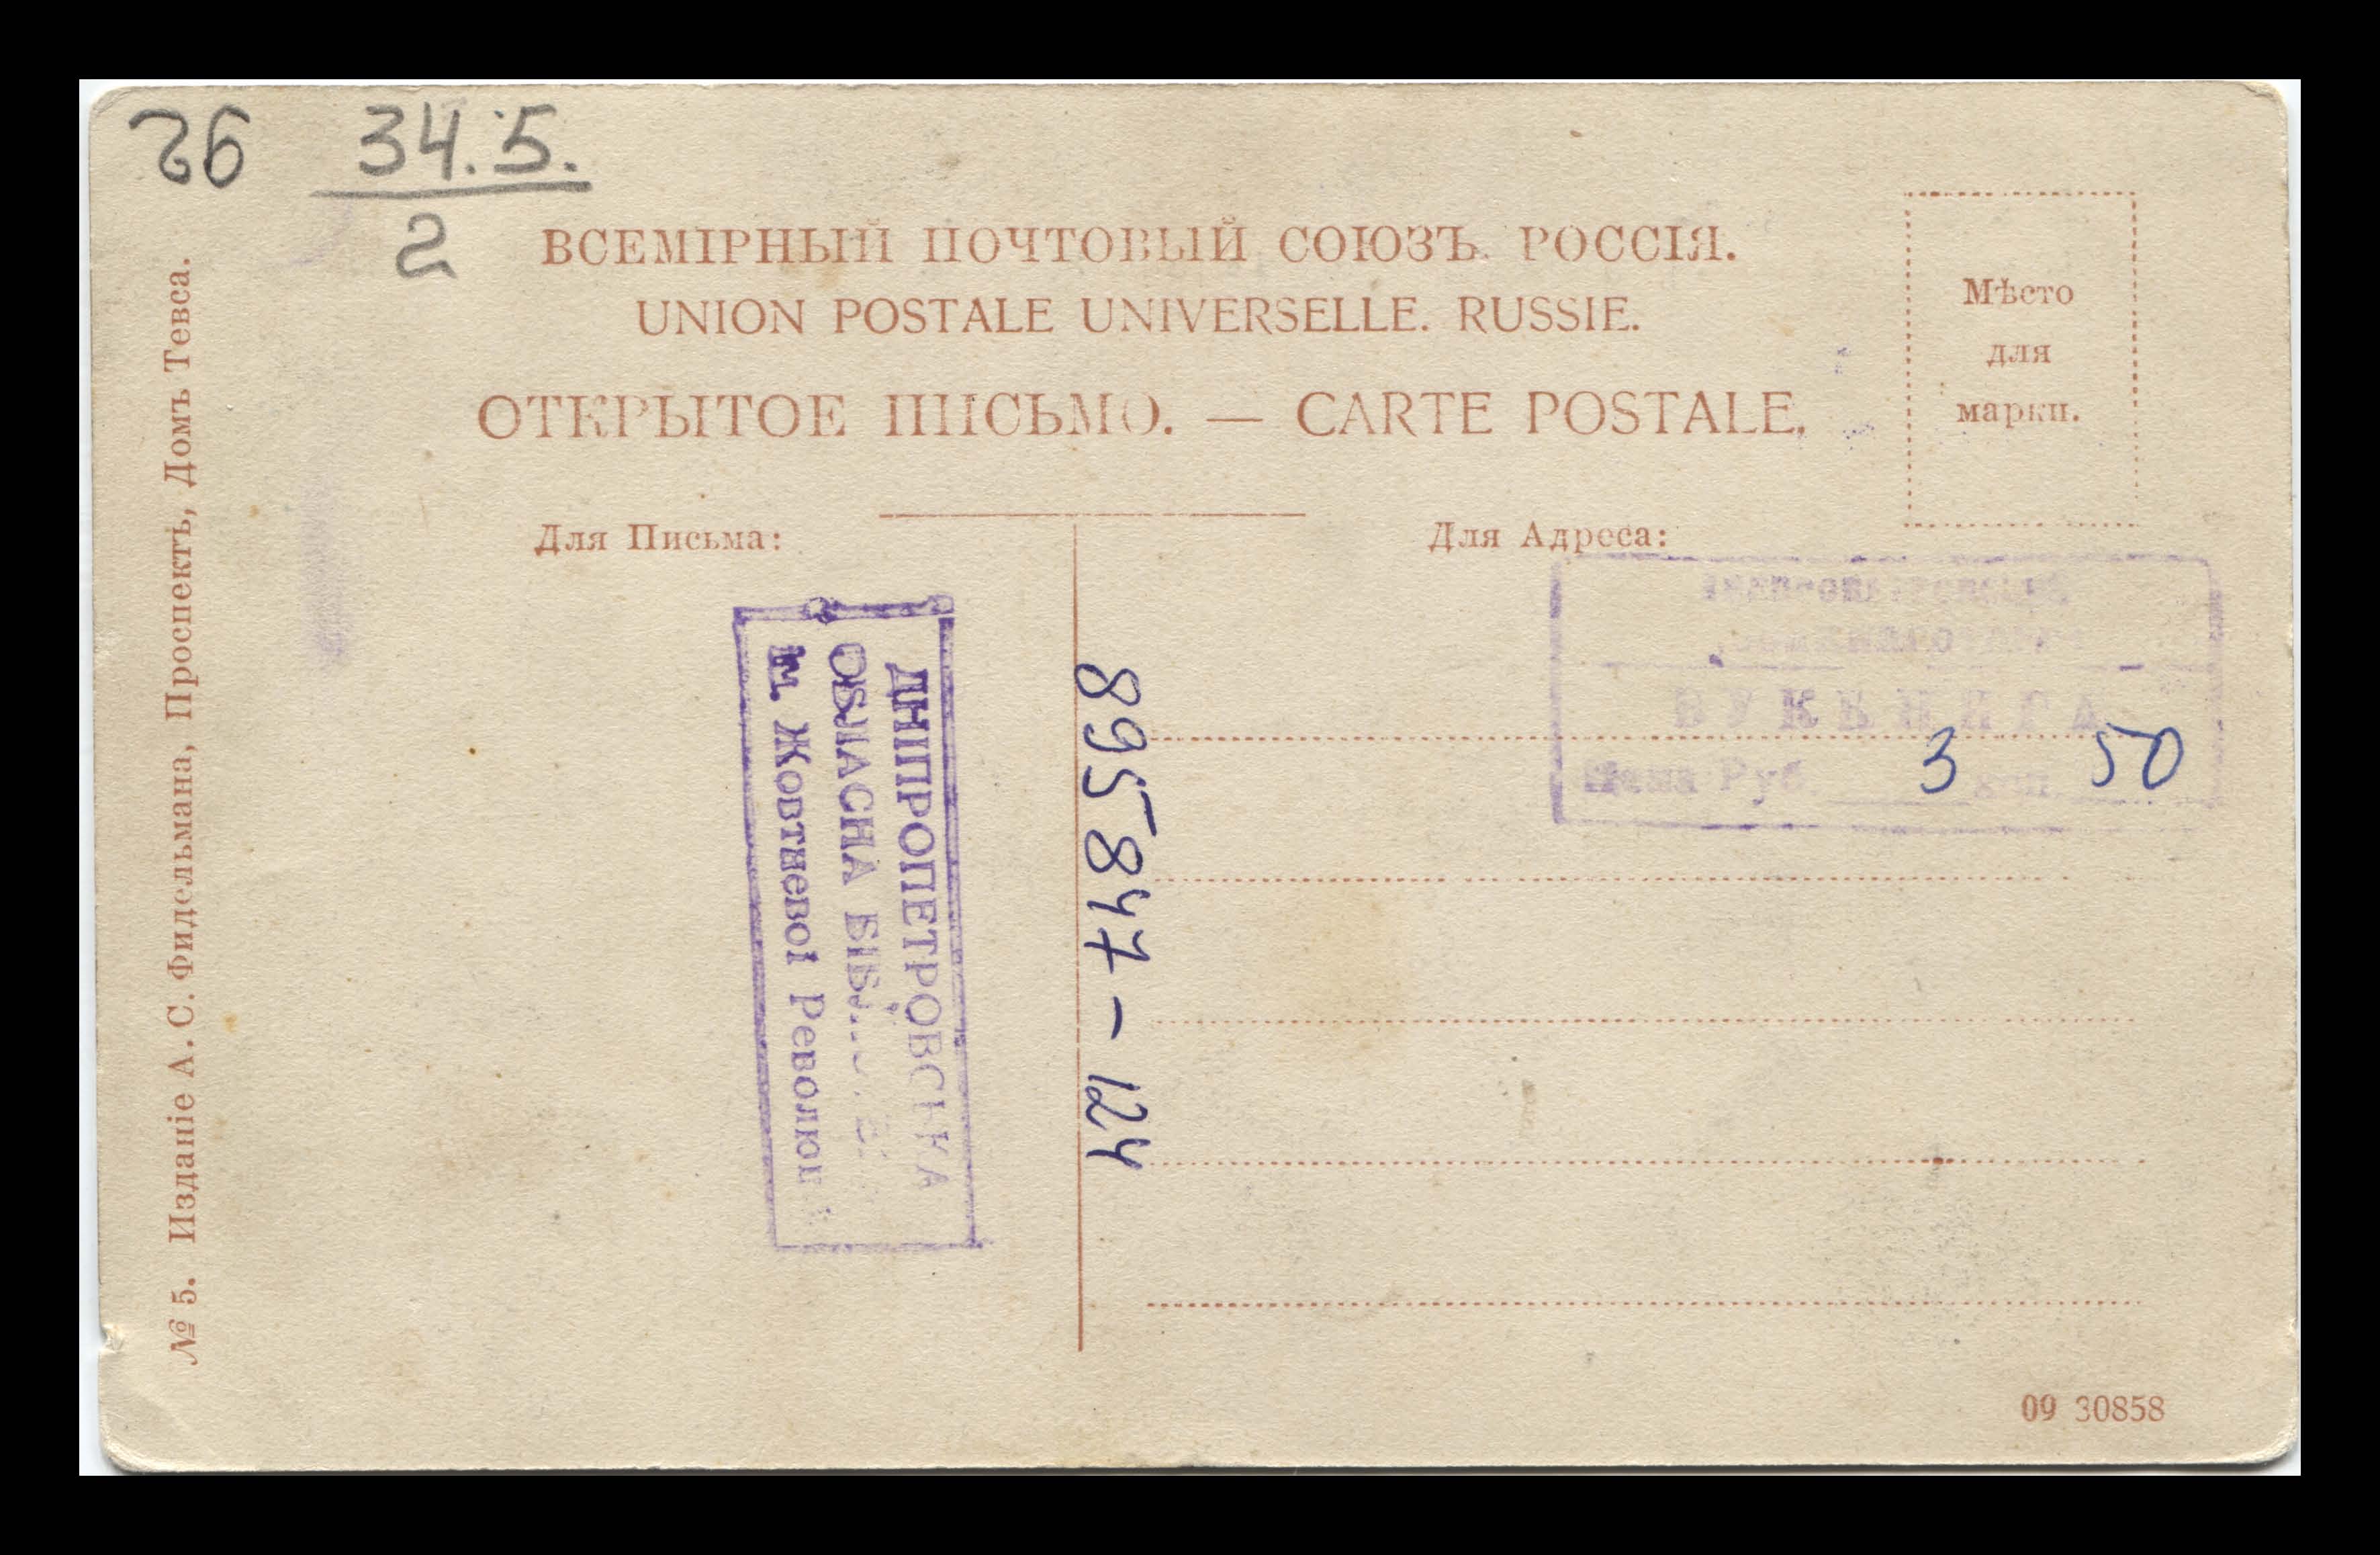 26
34.5.
2
ВСЕМІРНЫЙ ПОЧТОВЫЙ СОЮЗЪ. РОССІЯ.
UNION POSTALE UNIVERSELLE. RUSSIE.
ОТКРЫТОЕ ПИСЬМО. — CARTE POSTALE.
Мѣсто
для
марки.
Для Письма:
Для Адреса:
№ 5. Изданіе А. С. Фидельмана, Проспектъ, Домъ Тевса.
ДНІПРОПЕТРОВСЬКА
ОБЛАСНА
ім. Жовтневої Революції
895847 - 124
БУККНИГА
Цена Руб. 3 коп. 50
09 30858